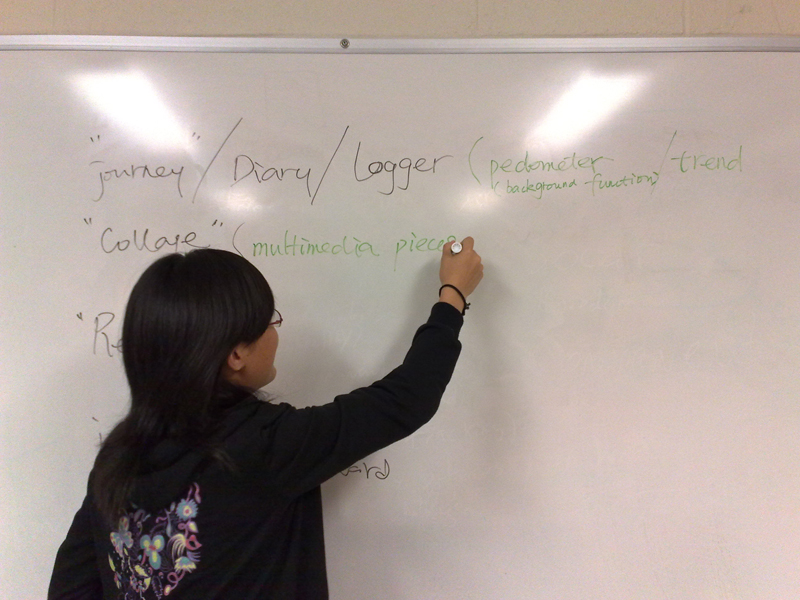 "journey" / Diary / Logger (pedometer / trend
(background function)
"Collage" (multimedia pieces